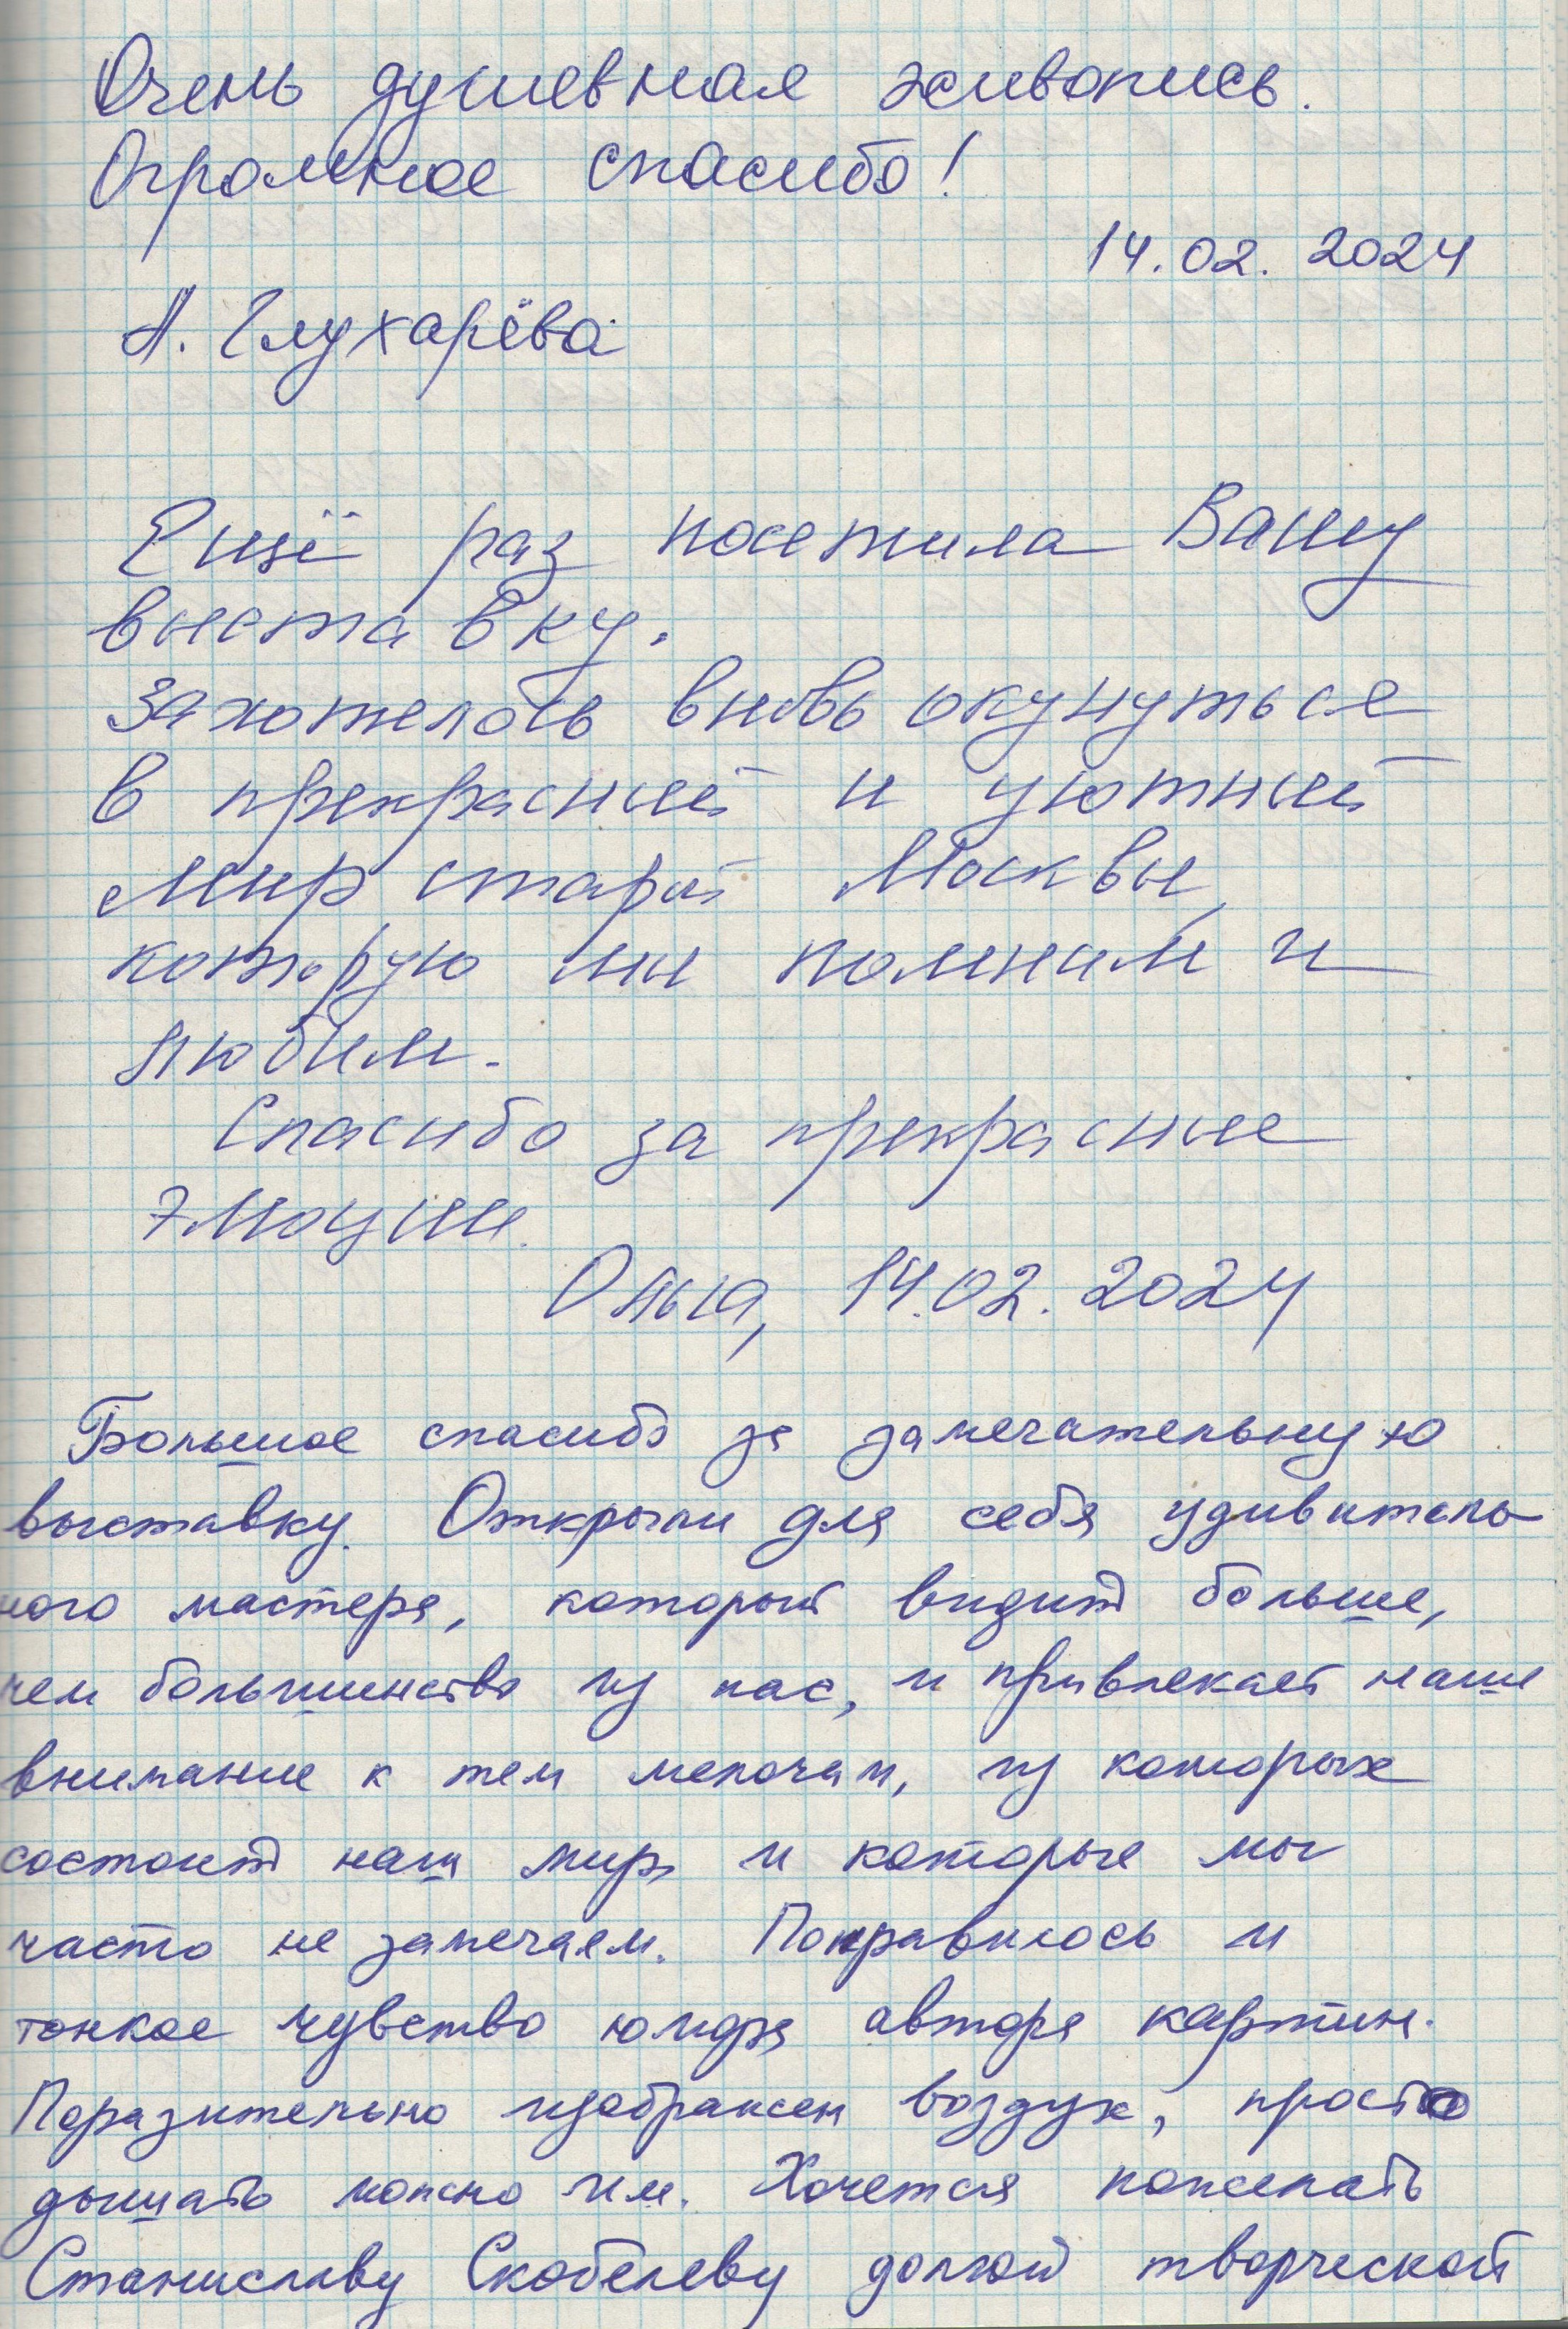 Очень душевная живопись.
Огромное спасибо!
14.02.2024
А. Глухарёва
Ещё раз посетила Вашу
выставку.
Захотелось вновь окунуться
в прекрасный и уютный
мир старой Москвы,
которую мы помним и
любим.
Спасибо за прекрасные
эмоции.
Ольга, 14.02.2024
Большое спасибо за замечательную
выставку. Открыли для себя удивитель
ного мастера, который видит больше,
чем большинство из нас, и привлекает наше
внимание к тем мелочам, из которых
состоит наш мир и которые мы
часто не замечаем. Понравилось и
тонкое чувство юмора автора картин.
Поразительно изображен воздух, просто
дышать можно им. Хочется пожелать
Станиславу Скобелеву долгой творческой